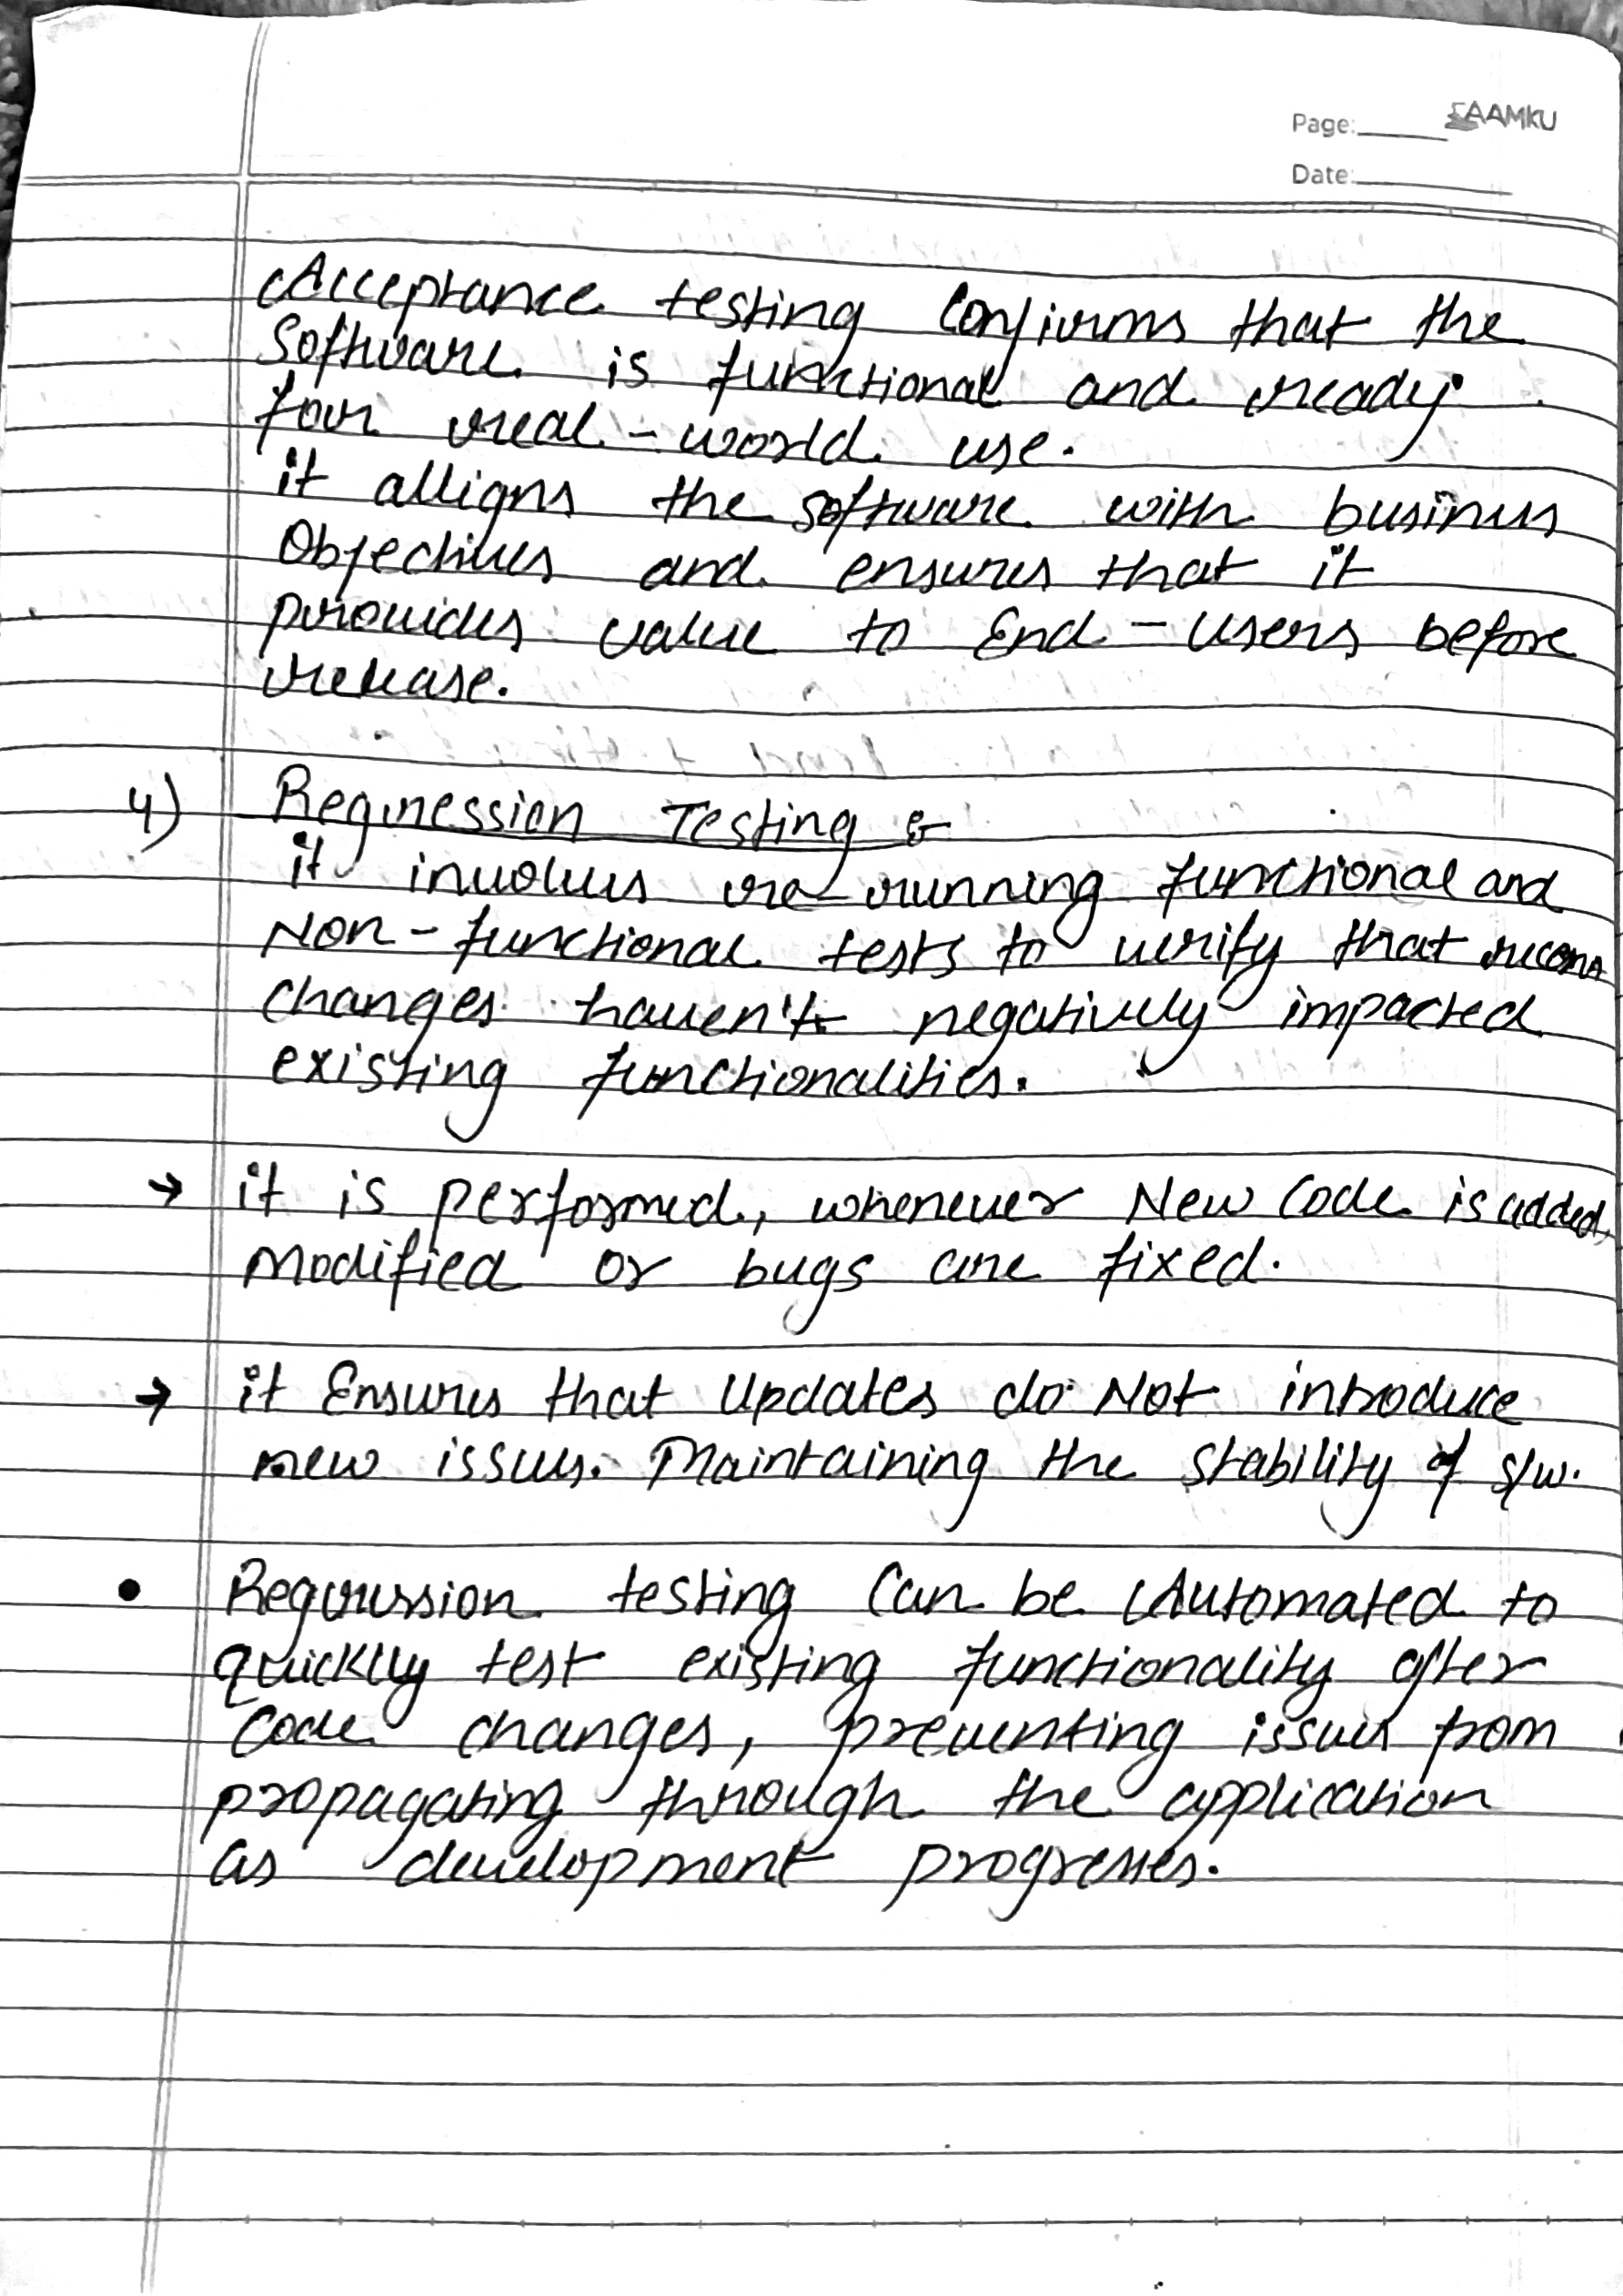 Page: SAAMKU
Date:
Acceptance testing Confirms that the
Software is functional and ready
for real-world use.
it alligns the software with business
Objectives and ensures that it
provides value to End-users before
release.
4) Regression Testing :-
it involves re-running functional and
Non-functional tests to verify that
changes haven't negatively impacted
existing functionalities.
→ it is performed, whenever New Code is added,
Modified or bugs are fixed.
→ it Ensures that Updates do Not introduce
new issues. Maintaining the stability of s/w.
• Regression testing Can be Automated to
quicklly test existing functionality after
Code changes, preventing issues from
propagating through the application
as development progresses.